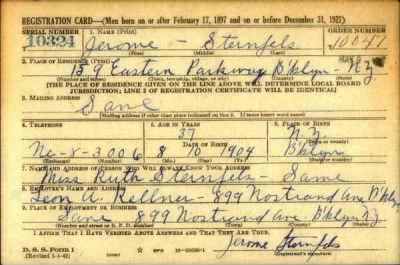 REGISTRATION CARD—(Men born on or after February 17, 1897 and on or before December 31, 1921)
SERIAL NUMBER 1. NAME (Print) ORDER NUMBER
10324 Jerome - Sternfels 10041
(First) (Middle) (Last)
2. PLACE OF RESIDENCE (Print)
159 Eastern Parkway B'klyn N.Y.
(Number and street) (Town, township, village, or city) (County) (State)
[THE PLACE OF RESIDENCE GIVEN ON THE LINE ABOVE WILL DETERMINE LOCAL BOARD
JURISDICTION; LINE 2 OF REGISTRATION CERTIFICATE WILL BE IDENTICAL]
3. MAILING ADDRESS
Same
[Mailing address if other than place indicated on line 2. If same insert word same]
4. TELEPHONE 5. AGE IN YEARS 6. PLACE OF BIRTH
37 N.Y.
DATE OF BIRTH
Ne-8-3006 8 10 1904 B'klyn
(Mo.) (Day) (Yr.)
7. NAME AND ADDRESS OF PERSON WHO WILL ALWAYS KNOW YOUR ADDRESS
Miss Ruth Sternfels - Same
8. EMPLOYER'S NAME AND ADDRESS
Leon A. Kellner - 899 Nostrand Ave B'klyn
9. PLACE OF EMPLOYMENT OR BUSINESS
Same 899 Nostrand Ave B'klyn N.Y.
(Number and street or R. F. D. number) (Town) (County) (State)
I AFFIRM THAT I HAVE VERIFIED ABOVE ANSWERS AND THAT THEY ARE TRUE.
D. S. S. Form 1 Jerome Sternfels
(Revised 1-1-42) (over) GPO (Registrant's signature)